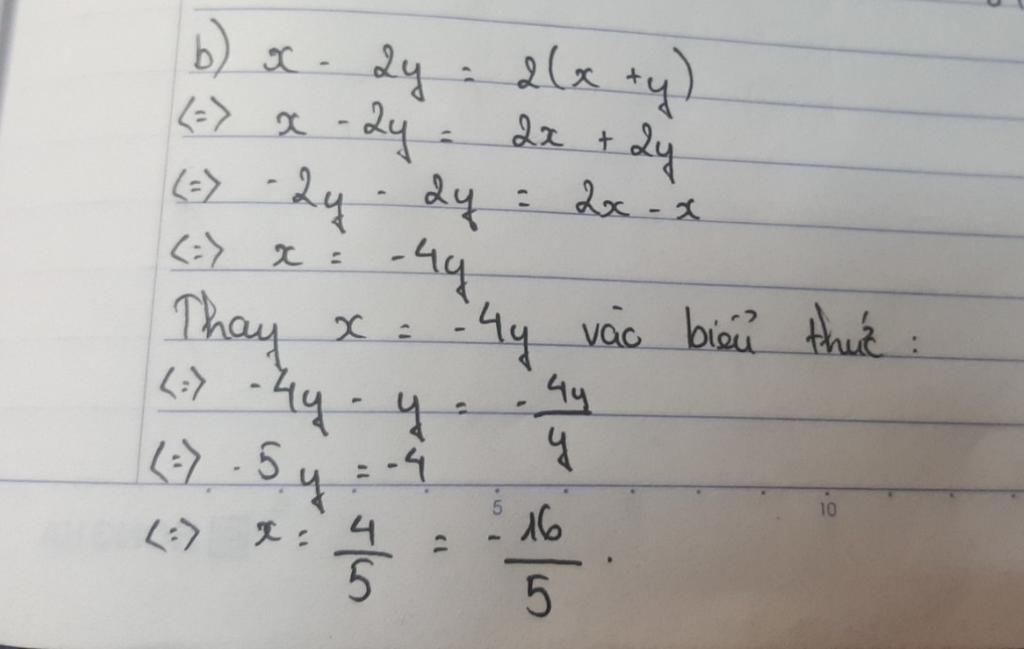 b) x - 2y = 2(x + y)
<=> x - 2y = 2x + 2y
<=> -2y - 2y = 2x - x
<=> x = -4y
Thay x = -4y vào biểu thức :
<=> -4y - y = -4y/y
<=> -5y = -4
5 10
<=> x = 4/5 = -16/5 .